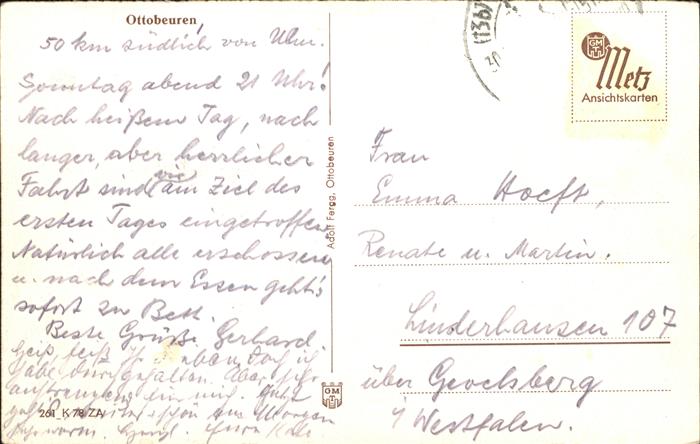 Ottobeuren,
50 km südlich von Ulm.
Sonntag abend 21 Uhr!
Nach heißem Tag, nach
langer, aber herrlicher
Fahrt sind wir am Ziel des
ersten Tages eingetroffen.
Natürlich alle erschossen
u. nach dem Essen geht's
sofort zu Bett.
Beste Grüße. Gerhard.
habe durchgehalten. Aber sehr
261 K 78 ZA
Adolf Fergg, Ottobeuren
GM
(13b)
GM
Metz
Ansichtskarten
Frau
Emma Hoeft,
Renate u. Martin.
Linderhausen 107
über Gevelsberg
i/Westfalen.